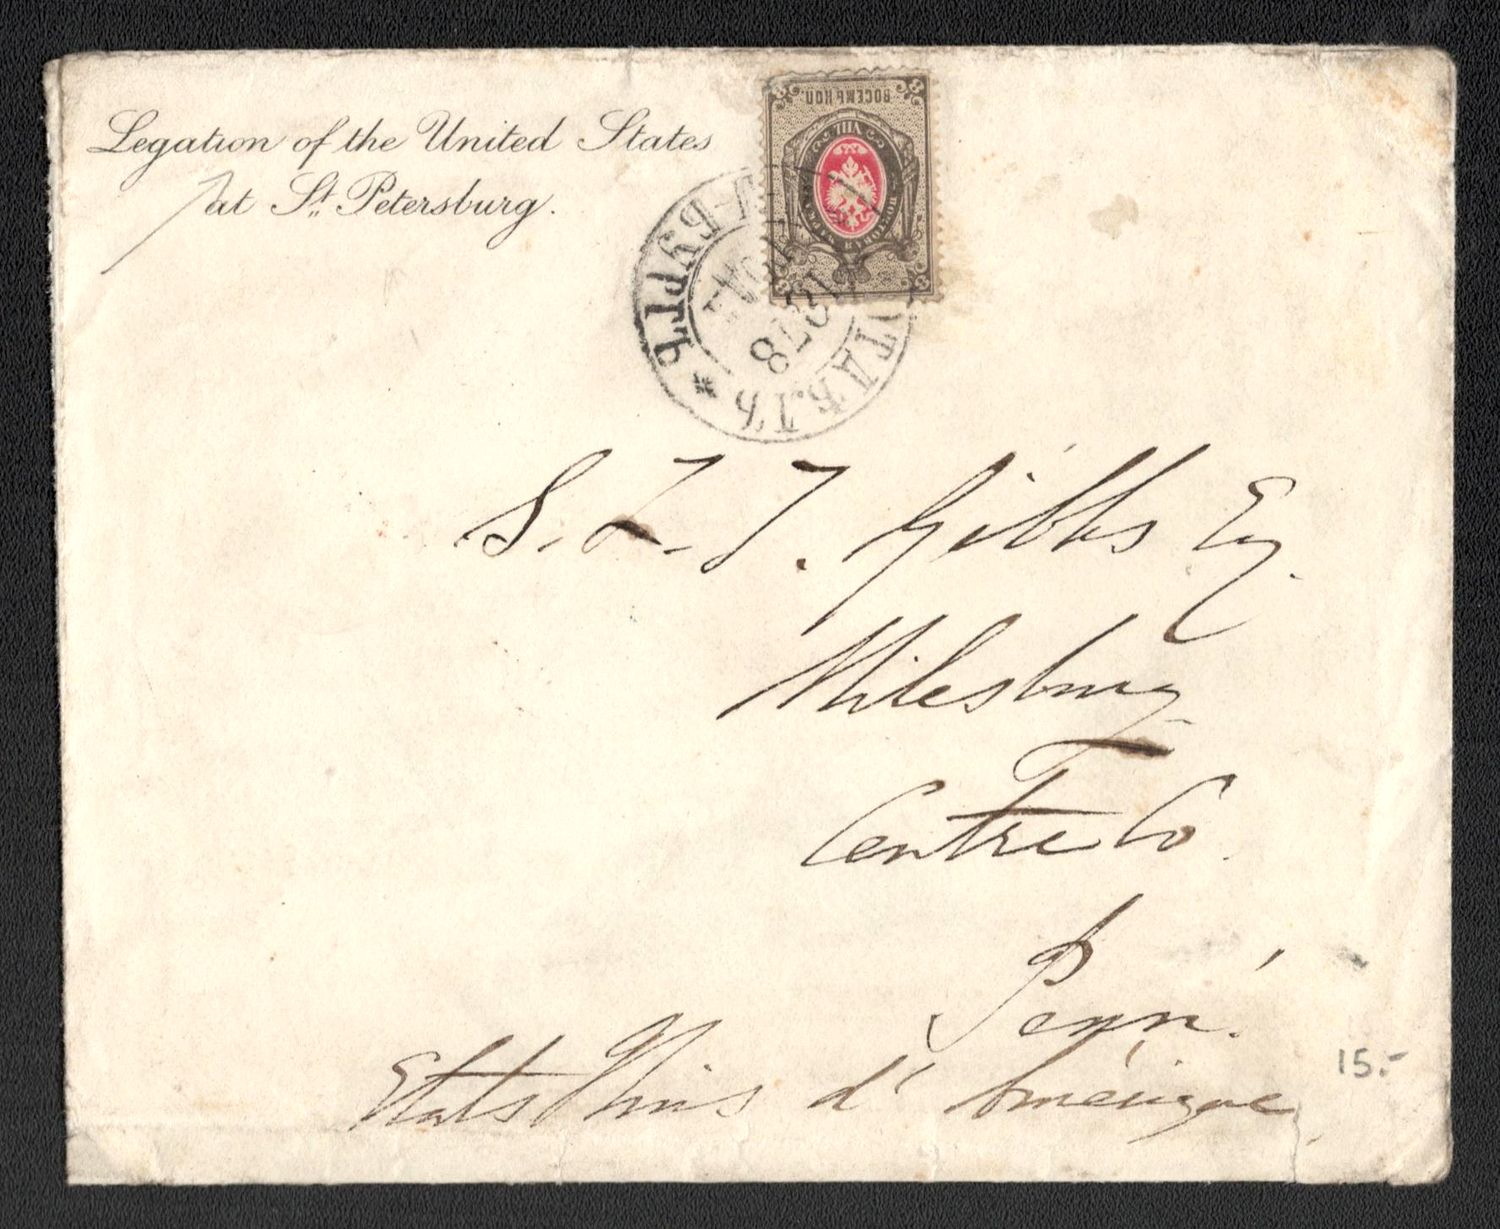 Legation of the United States
at St. Petersburg.
ВОСЕМЬ КОП.
8 8
8 8
1878
S. L. T. Gibbs Esq.
Milesburg
Centre Co.
Penn'.
Etats Unis d'Amérique
15.-